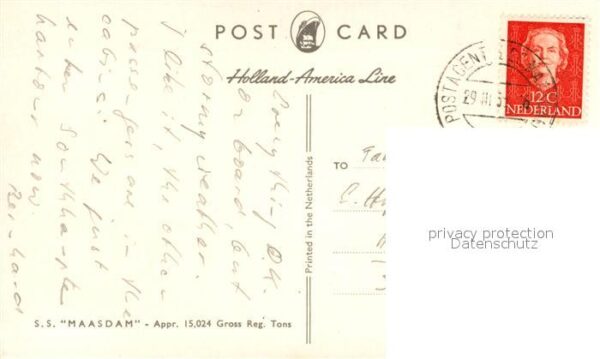 POST CARD
Holland-America Line
12 C
NEDERLAND
POSTAGENT
29 III 5
Everything O.K.
on board, but
stormy weather.
I like it, the other
passengers are in the
cabins. We just
enter Southampton
harbour now.
Bernhard
TO
Printed in the Netherlands
privacy protection
Datenschutz
S.S. "MAASDAM" - Appr. 15,024 Gross Reg. Tons